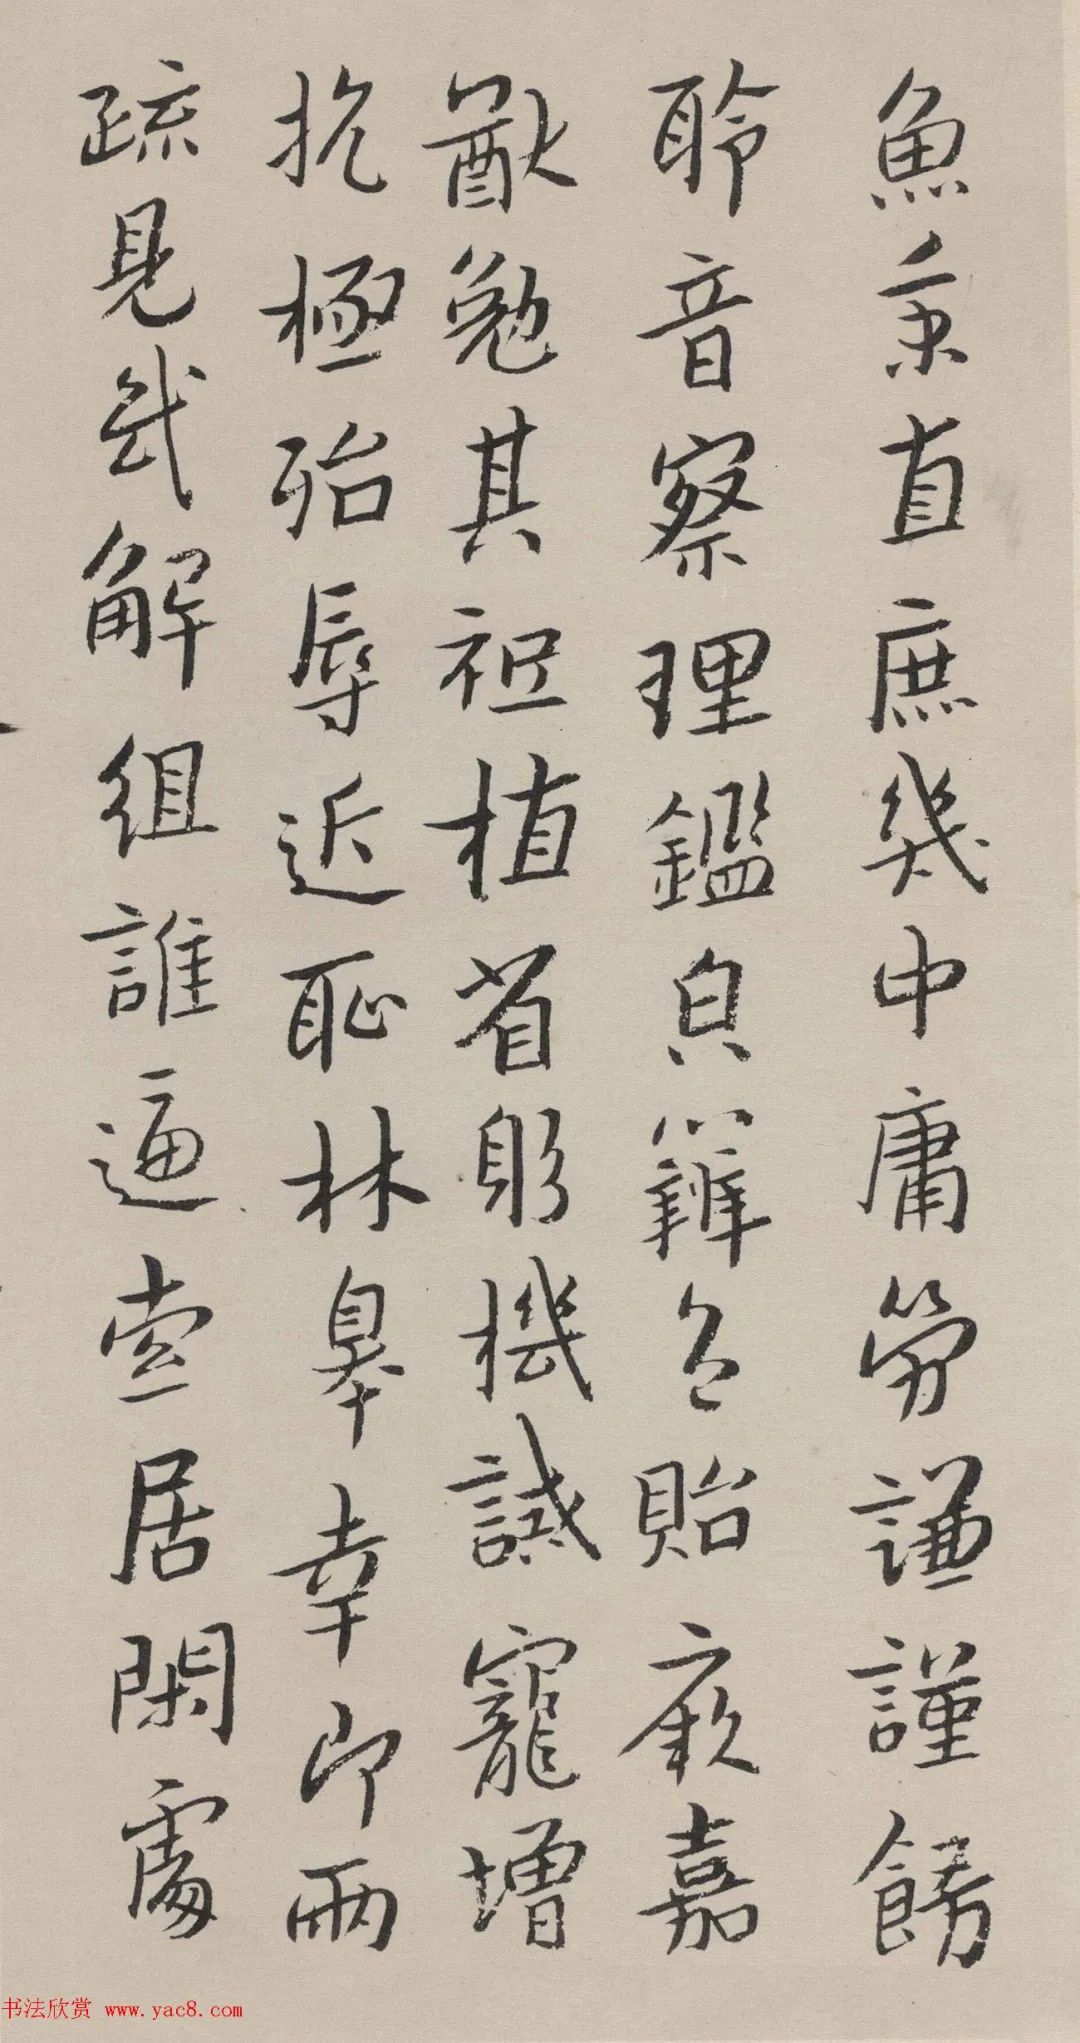 魚秉直庶幾中庸勞謙謹飭
聆音察理鑑皃辯色貽厥嘉
猷勉其祗植省躬機誡寵增
抗極殆辱近恥林皋幸即兩
疏見幾解組誰逼索居閑處
书法欣赏 www.yac8.com